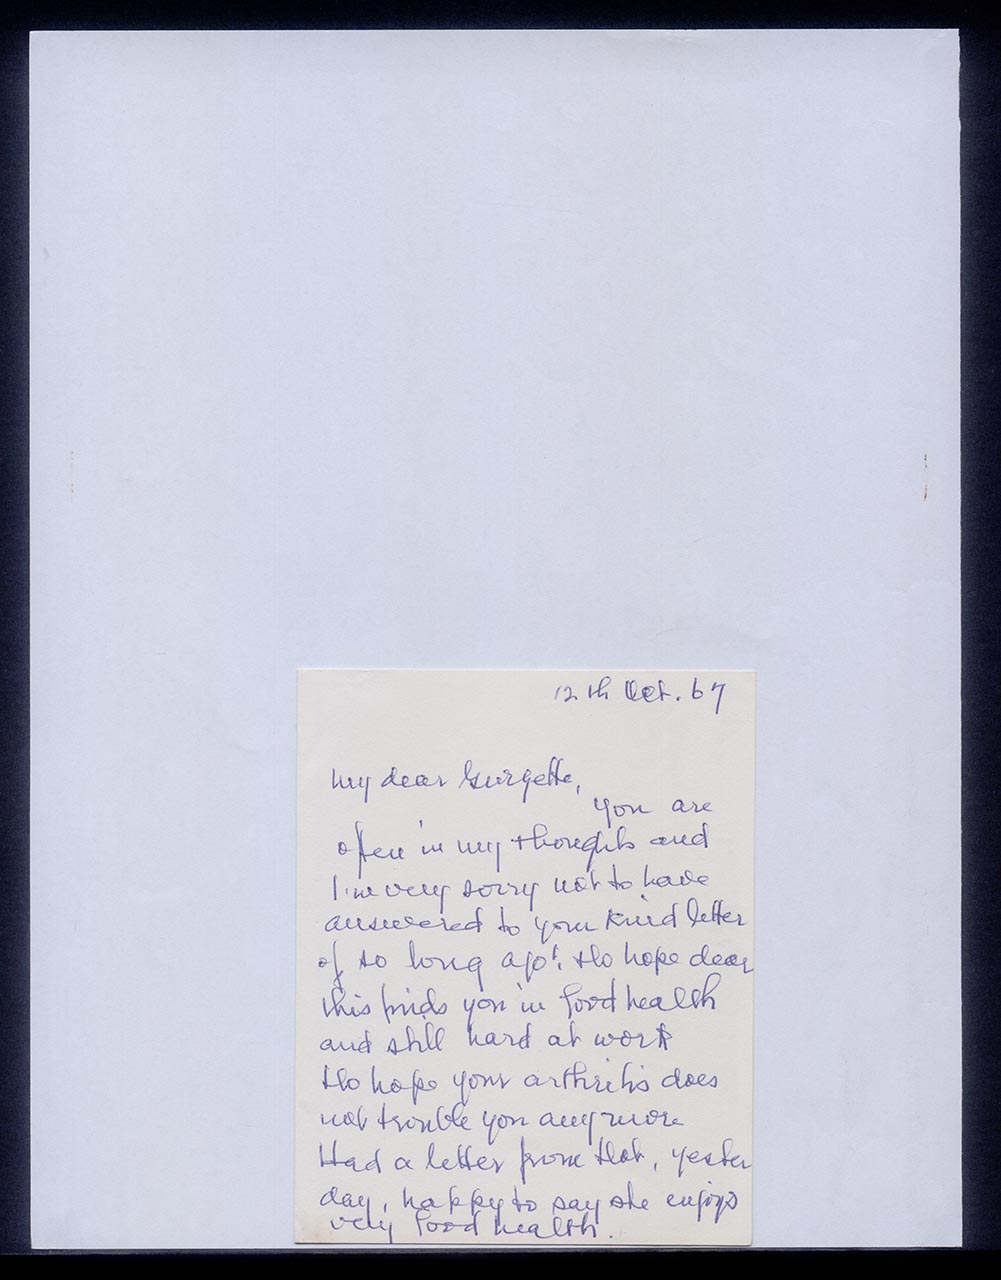 12th Oct. 67
My dear Georgette,
you are
often in my thoughts and
I'm very sorry not to have
answered to your kind letter
of so long ago! Do hope dear
this finds you in good health
and still hard at work
Do hope your arthritis does
not trouble you any more
Had a letter from Dot, yester
day, happy to say she enjoys
very good health.